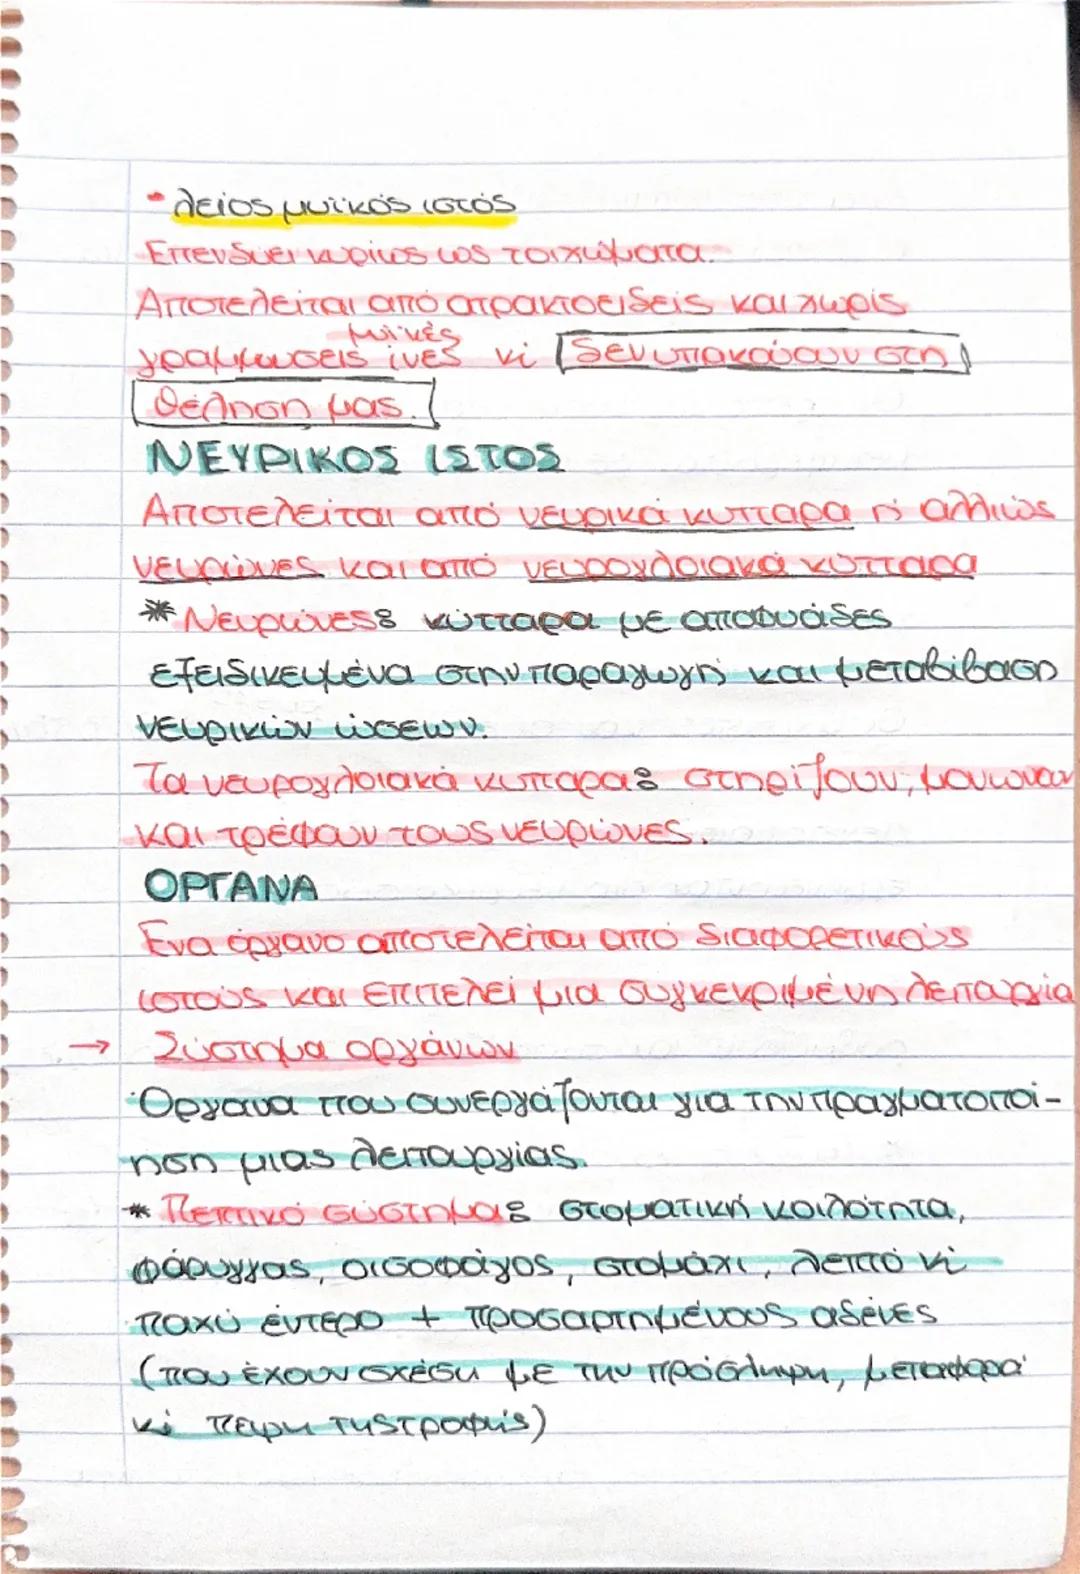 - λείος μυϊκός ιστός
Επενδύει κυρίως ως τοιχώματα.
Αποτελείται από ατρακτοειδείς και χωρίς
μυϊκές
γραμμώσεις ίνες κι δεν υπακούουν στη
θέλησή μας.
ΝΕΥΡΙΚΟΣ ΙΣΤΟΣ
Αποτελείται από νευρικά κύτταρα ή αλλιώς
νευρώνες και από νευρογλοιακά κύτταρα
* Νευρώνες: κύτταρα με αποφυάδες
εξειδικευμένα στην παραγωγή και μεταβίβαση
νευρικών ώσεων.
Τα νευρογλοιακά κύτταρα: στηρίζουν, μονώνουν
και τρέφουν τους νευρώνες.
ΟΡΓΑΝΑ
Ένα όργανο αποτελείται από διαφορετικούς
ιστούς και επιτελεί μια συγκεκριμένη λειτουργία
→ Σύστημα οργάνων
·Όργανα που συνεργάζονται για την πραγματοποί-
ηση μιας λειτουργίας.
* Πεπτικό σύστημα: στοματική κοιλότητα,
φάρυγγας, οισοφάγος, στομάχι, λεπτό κι
παχύ έντερο + προσαρτημένους αδένες
(που έχουν σχέση με την πρόσληψη, μεταφορά
κι πέψη της τροφής)